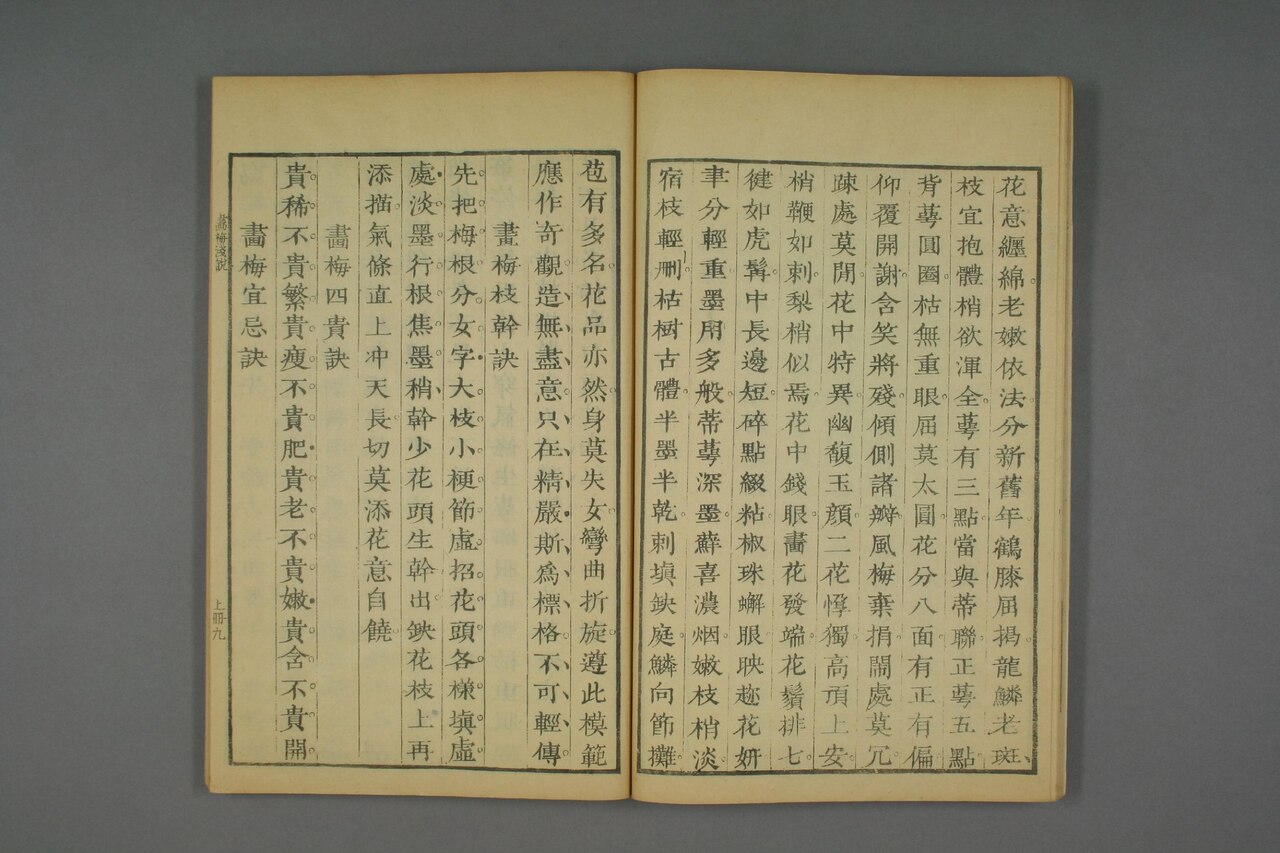 花意纏綿老嫩依法分新舊年鶴膝屈揭龍鱗老斑
枝宜抱體梢欲渾全蕚有三點當與蒂聯正蕚五點
背蕚圓圈枯無重眼屈莫太圓花分八面有正有偏
仰覆開謝含笑將殘傾側諸瓣風梅棄捐閙處莫冗
疎處莫閒花中特異幽馥玉顏二花惸獨高頂上安
梢鞭如刺梨梢似焉花中錢眼畵花發端花鬚排七
健如虎髯中長邊短碎點綴粘椒珠蠏眼映趂花妍
丰分輕重墨用多般蒂蕚深墨蘚喜濃烟嫩枝梢淡
宿枝輕刪枯樹古體半墨半乾刺塡鈌庭鱗向節攤
苞有多名花品亦然身莫失女彎曲折旋遵此模範
應作奇觀造無盡意只在精嚴斯爲標格不可輕傳
畫梅枝幹訣
先把梅根分女字大枝小梗節虛招花頭各樣塡虛
處淡墨行根焦墨稍幹少花頭生幹出鈌花枝上再
添描氣條直上冲天長切莫添花意自饒
畵梅四貴訣
貴稀不貴繁貴瘦不貴肥貴老不貴嫩貴含不貴開
畵梅宜忌訣
畵梅淺說
上冊九